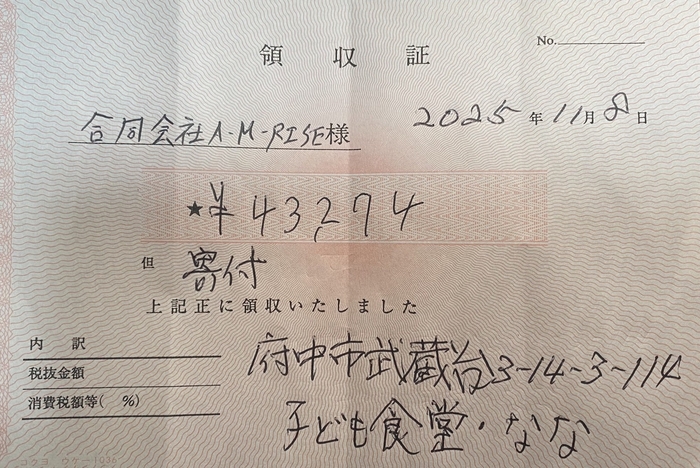 領収証
No.
合同会社A-M-RISE様
2025年11月8日
★¥43,274
但 寄付
上記正に領収いたしました
内訳
税抜金額
消費税額等( %)
府中市武蔵台3-14-3-114
子ども食堂・なな
コクヨ ウケ-1096